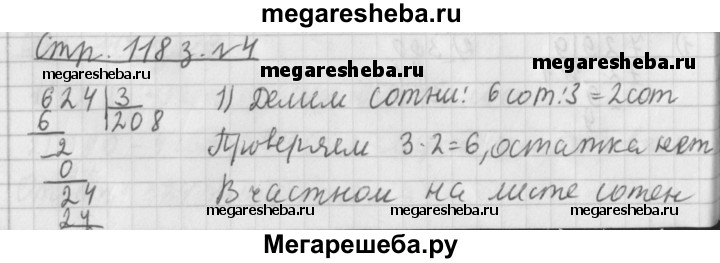 megaresheba.ru
Стр. 118 з. №4
megaresheba.ru
megaresheba.ru
624 | 3
6 208
1) Делим сотни: 6сот:3=2сот
2
Проверяем 3·2=6, остатка нет
0
24
В частном на месте сотен
24
megaresheba.ru megaresheba.ru megaresheba.ru
Мегарешеба.ру